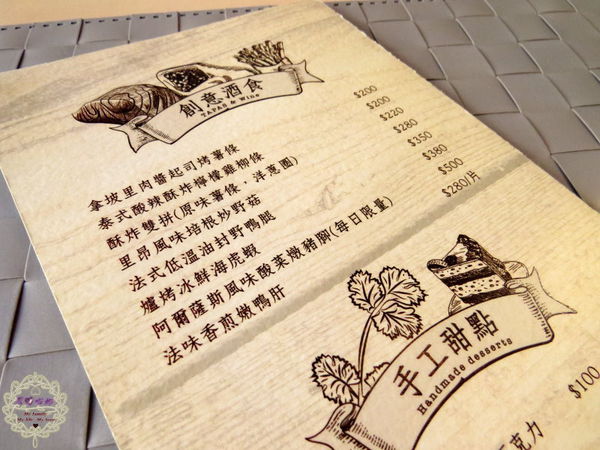 創意酒食
TAPAS & Wine
拿坡里肉醬起司烤薯條 $200
泰式酸辣酥炸檸檬雞柳條 $200
酥炸雙拼(原味薯條,洋蔥圈) $220
里昂風味培根炒野菇 $280
法式低溫油封野鴨腿 $350
爐烤冰鮮海虎蝦 $380
阿爾薩斯風味酸菜燉豬腳(每日限量) $500
法味香煎嫩鴨肝 $280/片
手工甜點
Handmade desserts
克力 $100